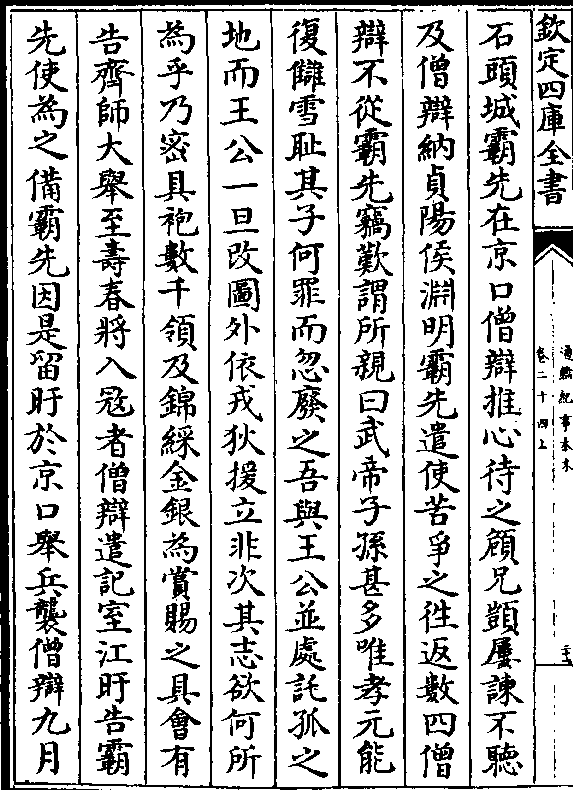 欽定四庫全書
通鑑紀事本末
卷二十四上
石頭城霸先在京口僧辯推心待之顧兄顗屢諫不聽
及僧辯納貞陽侯淵明霸先遣使苦爭之徃返數四僧
辯不從霸先竊歎謂所親曰武帝子孫甚多唯孝元能
復讎雪耻其子何罪而忽廢之吾與王公並處託孤之
地而王公一旦改圖外依戎狄援立非次其志欲何所
為乎乃密具袍數千領及錦綵金銀為賞賜之具會有
告齊師大舉至壽春將入冦者僧辯遣記室江旰告霸
先使為之備霸先因是留旰於京口舉兵襲僧辯九月